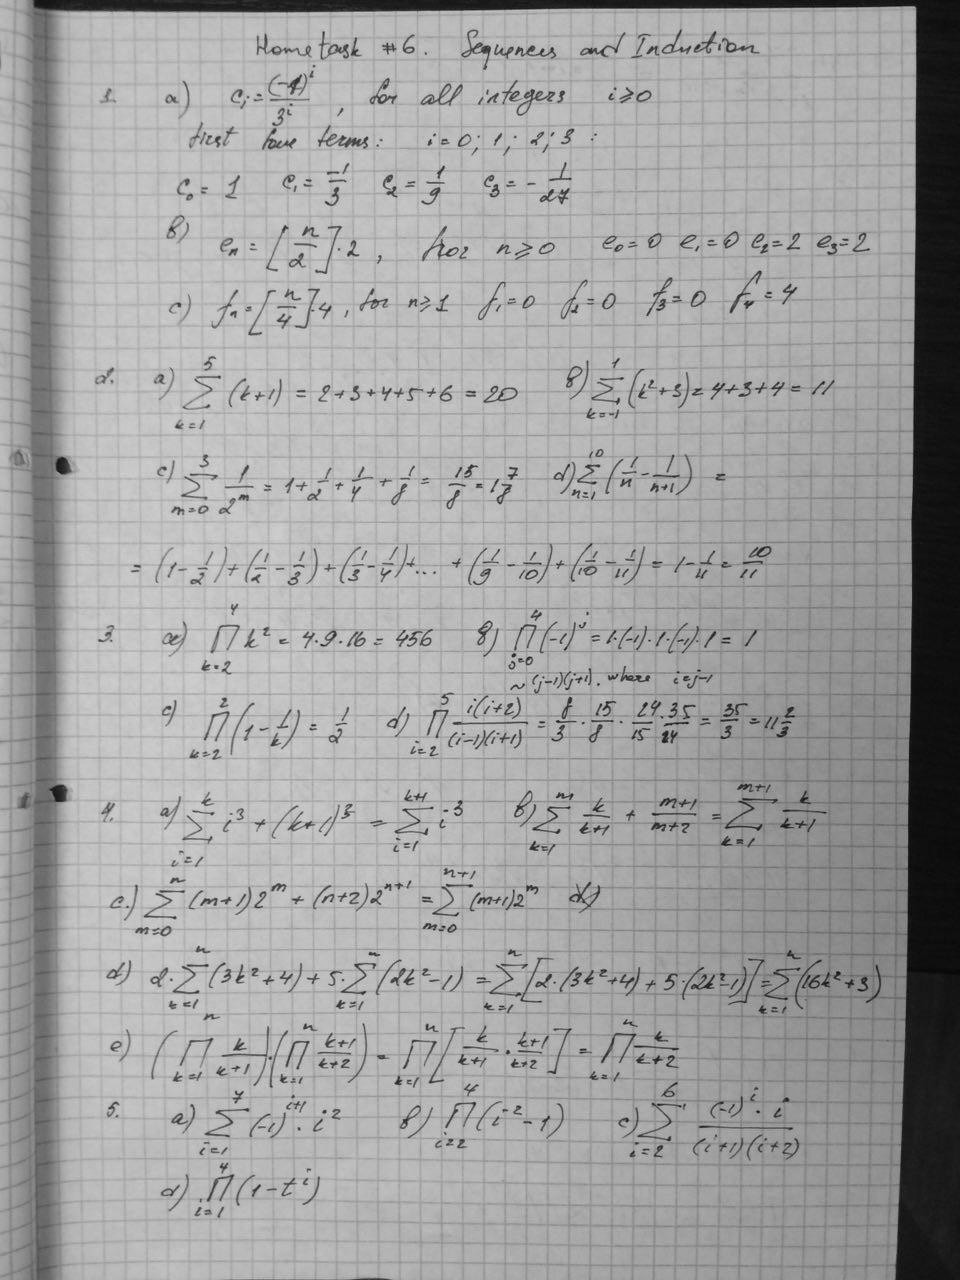 Hometask #6. Sequences and Induction
1. a) cᵢ = (-1)^i / 3^i, for all integers i ≥ 0
first four terms: i = 0; 1; 2; 3 :
c₀ = 1 c₁ = -1/3 c₂ = 1/9 c₃ = - 1/27
b) eₙ = [n/2]·2, for n ≥ 0 e₀ = 0 e₁ = 0 e₂ = 2 e₃ = 2
c) fₙ = [n/4]·4, for n ≥ 1 f₁ = 0 f₂ = 0 f₃ = 0 f₄ = 4
2. a) ∑_{k=1}^{5} (k+1) = 2+3+4+5+6 = 20 b) ∑_{k=-1}^{1} (k²+3) = 4+3+4 = 11
c) ∑_{m=0}^{3} 1/2^m = 1 + 1/2 + 1/4 + 1/8 = 15/8 = 1 7/8 d) ∑_{n=1}^{10} (1/n - 1/(n+1)) =
= (1 - 1/2) + (1/2 - 1/3) + (1/3 - 1/4) + ... + (1/9 - 1/10) + (1/10 - 1/11) = 1 - 1/11 = 10/11
3. a) ∏_{k=2}^{4} k² = 4·9·16 = 456 b) ∏_{j=0}^{4} (-1)^j = 1·(-1)·1·(-1)·1 = 1
~ (j-1)(j+1), where i = j-1
c) ∏_{k=2}^{2} (1 - 1/k) = 1/2 d) ∏_{i=2}^{5} i(i+2)/((i-1)(i+1)) = 8/3 · 15/8 · 24/15 · 35/24 = 35/3 = 11 2/3
4. a) ∑_{i=1}^{k} i³ + (k+1)³ = ∑_{i=1}^{k+1} i³ b) ∑_{k=1}^{m} k/(k+1) + (m+1)/(m+2) = ∑_{k=1}^{m+1} k/(k+1)
c.) ∑_{m=0}^{n} (m+1)2^m + (n+2)2^{n+1} = ∑_{m=0}^{n+1} (m+1)2^m
d) 2·∑_{k=1}^{n} (3k²+4) + 5·∑_{k=1}^{n} (2k²-1) = ∑_{k=1}^{n} [2·(3k²+4) + 5·(2k²-1)] = ∑_{k=1}^{n} (16k²+3)
e) (∏_{k=1}^{n} k/(k+1))·(∏_{k=1}^{n} (k+1)/(k+2)) = ∏_{k=1}^{n} [k/(k+1) · (k+1)/(k+2)] = ∏_{k=1}^{n} k/(k+2)
5. a) ∑_{i=1}^{7} (-1)^{i+1}·i² b) ∏_{i=2}^{4} (i²-1) c) ∑_{i=2}^{6} (-1)^i·i / ((i+1)(i+2))
d) ∏_{i=1}^{4} (1-t^i)